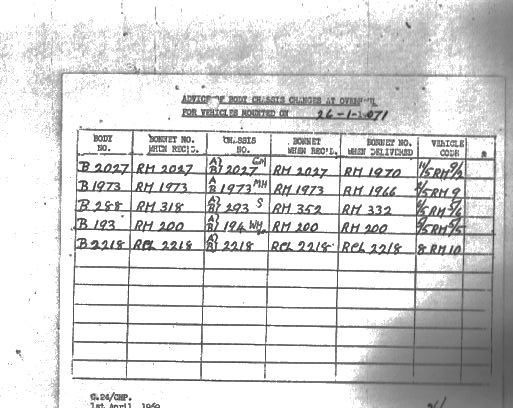 ADVICE OF BODY CHASSIS CHANGES AT OVERHAUL
FOR VEHICLES MOUNTED ON 26-1-1971
BODY NO. BONNET NO. WHEN REC'D. CHASSIS NO. BONNET WHEN REC'D. BONNET NO. WHEN DELIVERED VEHICLE CODE
B 2027 RM 2027 A) B) 2027 GM RM 2027 RM 1970 RM
B 1973 RM 1973 A B 1973 MH RM 1973 RM 1966 RM 9
B 288 RM 318 A) B) 293 S RM 352 RM 332 RM
B 193 RM 200 A) B) 194 WH RM 200 RM 200 RM
B 2218 RCL 2218 A) B) 2218 RCL 2218 RCL 2218 8 RM 10
C.24/CHP.
1st April, 1969